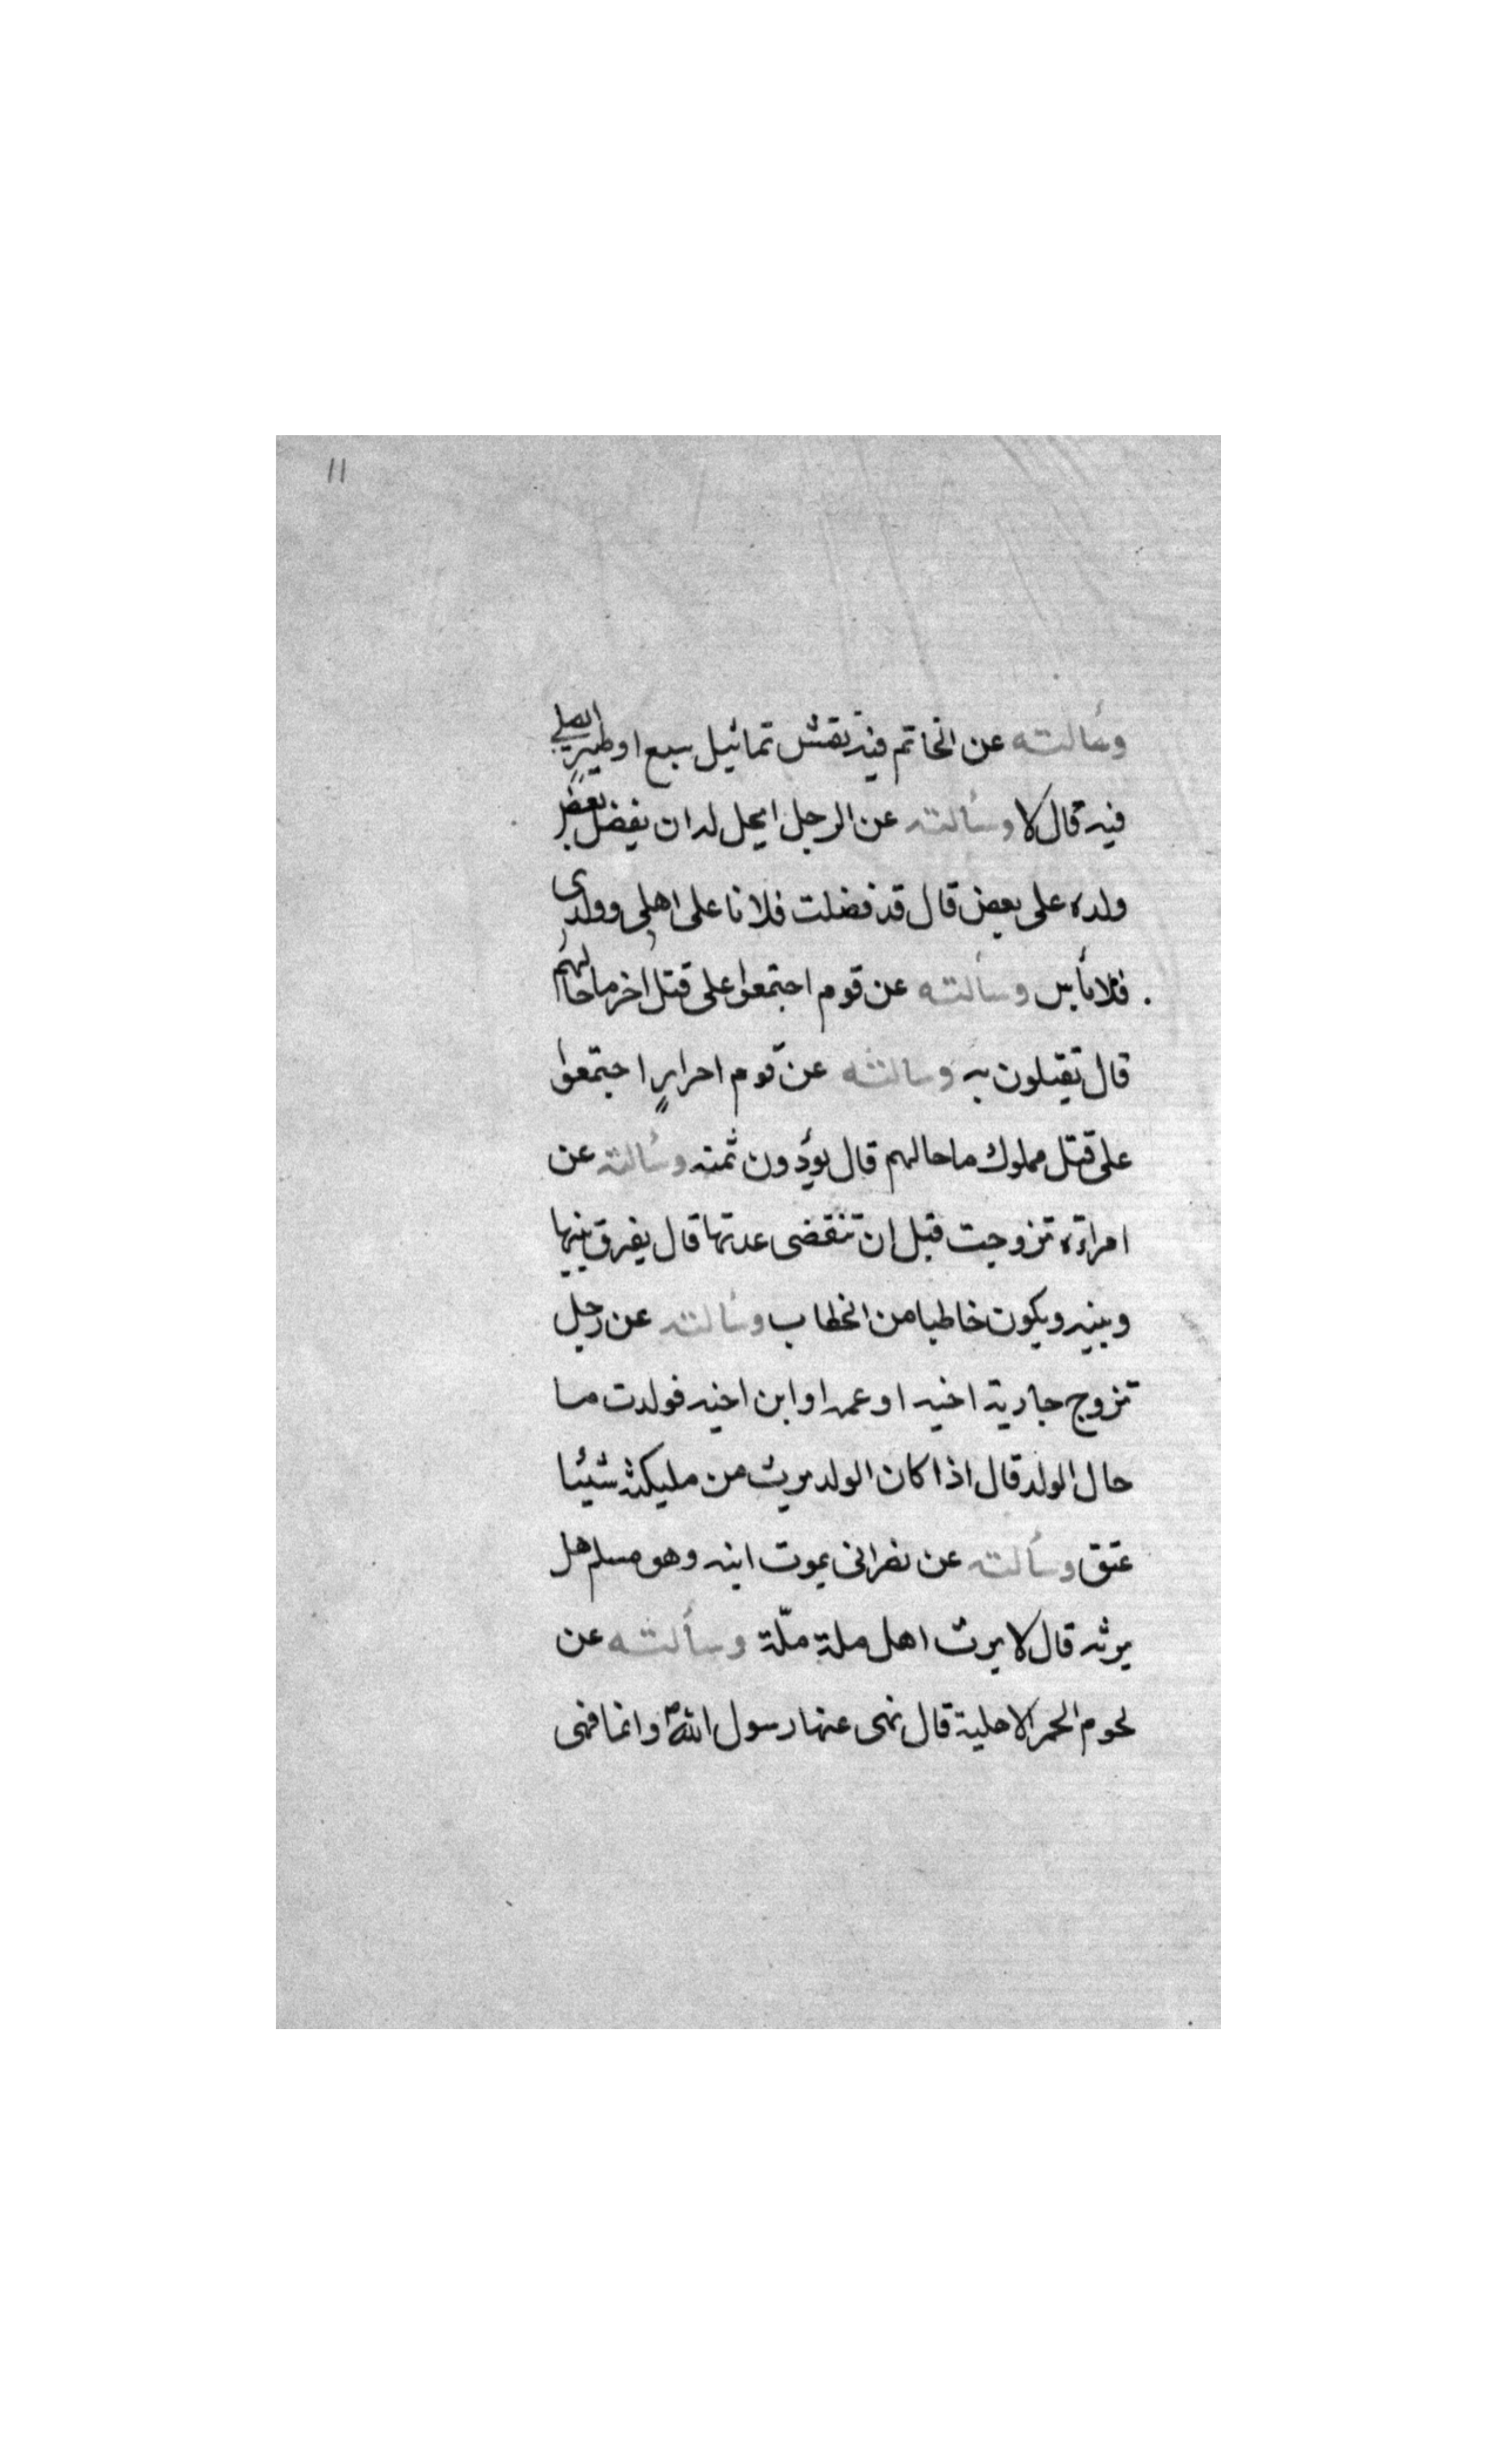 ١١
وسألته عن الخاتم فيه نقش تماثيل سبع او طير ايصلي
فيه قال لا وسألته عن الرجل ايحل له ان يفضل بعض
ولده على بعض قال قد فضلت فلانا على اهلى وولدى
فلا بأس وسألته عن قوم اجتمعوا على قتل اخر ما حالهم
قال تقتلون به وسالته عن قوم احرار اجتمعوا
على قتل مملوك ما حالهم قال يؤدون ثمنه وسألته عن
امراءة تزوجت قبل ان تنقضى عدتها قال يفرق بينها
وبينه ويكون خاطبا من الخطاب وسألته عن رجل
تزوج جارية اخيه او عمه او ابن اخيه فولدت ما
حال الولد قال اذا كان الولد يرث من مليكته شيئا
عتق وسألته عن نصرانى يموت ابنه وهو مسلم هل
يرثه قال لا يرث اهل ملة ملّة وسألته عن
لحوم الحمر الاهلية قال نهى عنها رسول الله ص وانما نهى